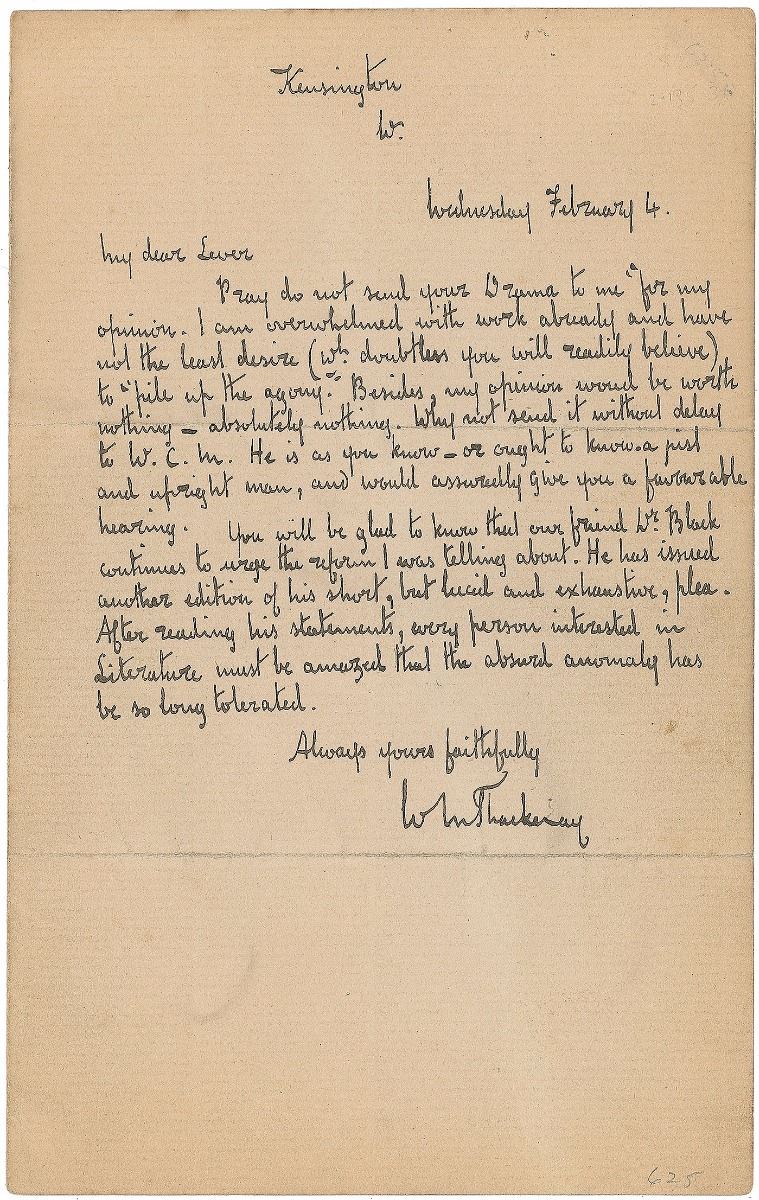 Kensington
W.
Wednesday February 4.
My dear Lever
Pray do not send your Drama to me "for my
opinion. I am overwhelmed with work already and have
not the least desire (wh. doubtless you will readily believe)
to "pile up the agony." Besides, my opinion would be worth
nothing – absolutely nothing. Why not send it without delay
to W. C. M. He is as you know – or ought to know – a just
and upright man, and would assuredly give you a favourable
hearing. You will be glad to know that our friend Dr. Black
continues to urge the reform I was telling about. He has issued
another edition of his short, but lucid and exhaustive, plea.
After reading his statements, every person interested in
Literature must be amazed that the absurd anomaly has
be so long tolerated.
Always yours faithfully
W M Thackeray
625